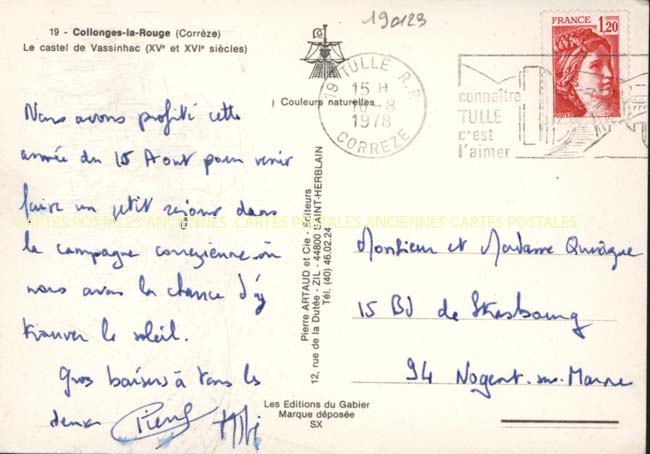 190123
19 - Collonges-la-Rouge (Corrèze)
Le castel de Vassinhac (XVe et XVIe siècles)
Couleurs naturelles
Nous avons profité cette
année du 15 Aout pour venir
faire un petit séjour dans
la campagne corrézienne où
nous avons la chance d'y
trouver le soleil.
Gros baisers à tous les
deux
Pierre
Pierre ARTAUD et Cie - Éditeurs
12, rue de la Dutée - ZIL - 44800 SAINT-HERBLAIN
Tél. (40) 46.02.24
Les Editions du Gabier
Marque déposée
SX
FRANCE 1,20
POSTES
19 TULLE R.P.
15 H
16-8
1978
CORREZE
connaître
TULLE
c'est
l'aimer
Monsieur et Madame
15 Bd de Strasbourg
94 Nogent-sur-Marne
CARTES POSTALES ANCIENNES CARTES POSTALES ANCIENNES CARTES POSTALES